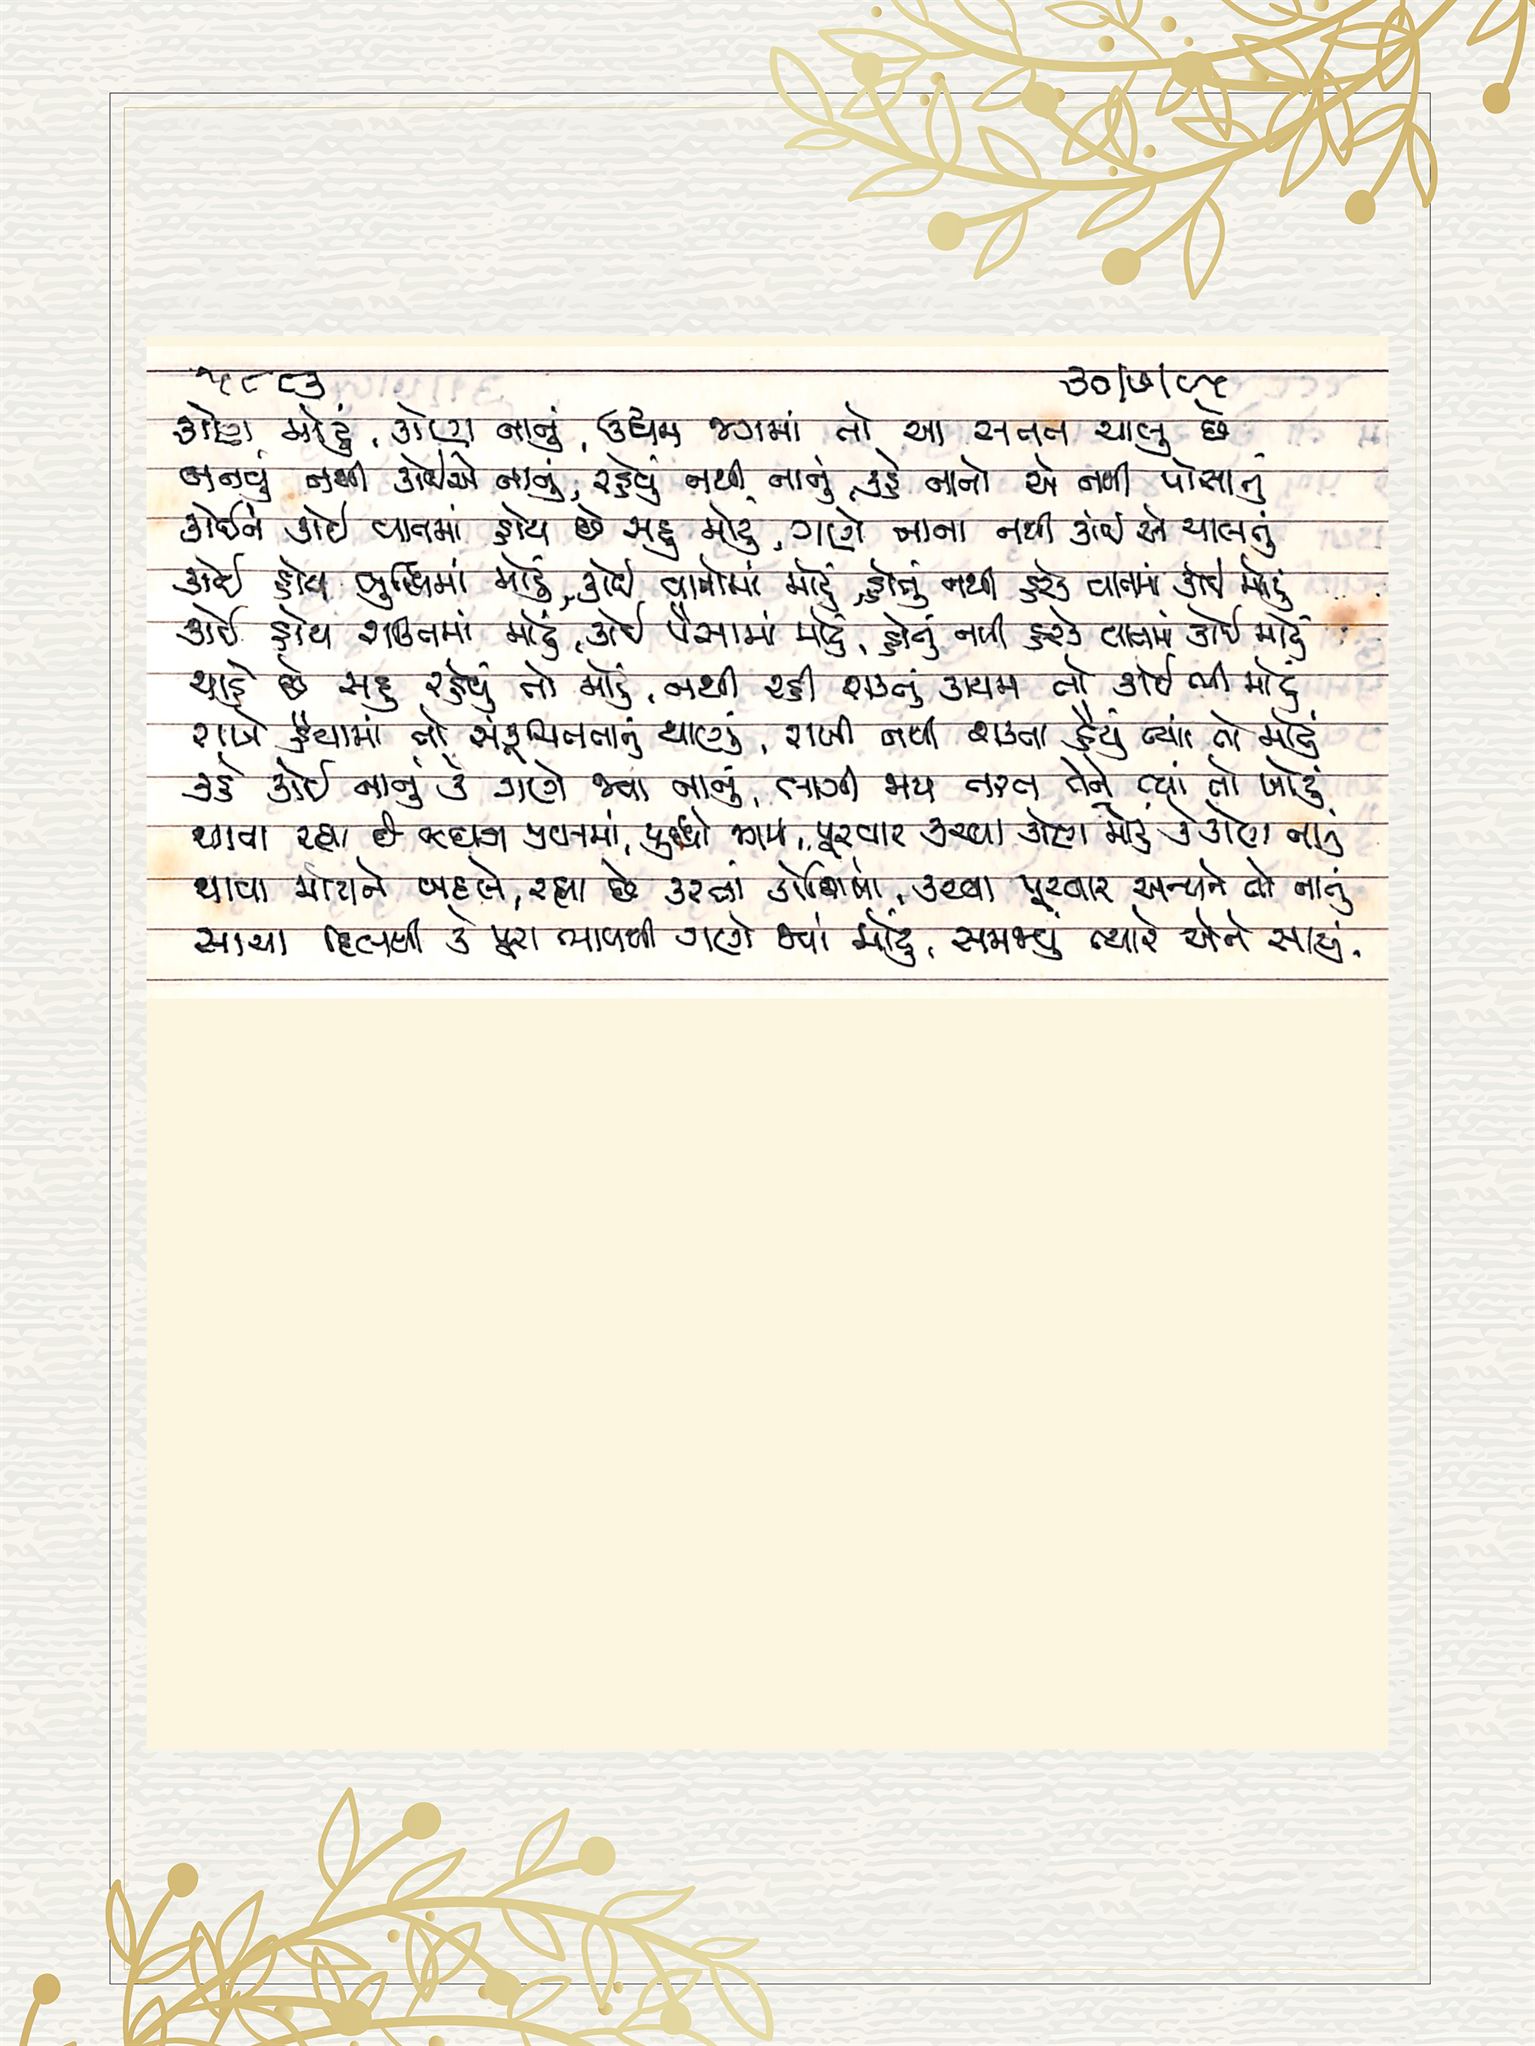 ૫૮૮૩ ૩૦/૭/૯૫
કોણ મોટું, કોણ નાનું, ઉદ્યમ જગમાં તો આ સતત ચાલુ છે
બનવું નથી કોઈએ નાનું, રહેવું નથી નાનું, કહે નાનો એ નથી પોસાતું
કોઈને કોઈ વાતમાં હોય છે સહુ મોટું, ગણે નાના નથી કાંઈ એ ચાલતું
કોઈ હોય બુદ્ધિમાં મોટું, કોઈ વાતોમાં મોટું, હોતું નથી હરેક વાતમાં કોઈ મોટું
કોઈ હોય શક્તિમાં મોટું, કોઈ પૈસામાં મોટું, હોતું નથી હરેક વાતમાં કોઈ મોટું
ચાહે છે સહુ રહેવું તો મોટું, નથી રહી શકતું કાયમ તો કોઈ ભી મોટું
રાખે હૈયામાં તો સંકુચિતતાનું થાણું, રાખી નથી શકતા હૈયું ત્યાં તો મોટું
કહે કોઈ નાનું કે ગણે જ્યાં નાનું, લાગી જાય તરત તેને ત્યાં તો ખોટું
થાવા રહ્યા છે બધા પ્રયત્નમાં, પુરવાર કરવા કોણ મોટું કે કોણ નાનું
થાવા મોટાને બદલે, રહ્યા છે કરતાં કોશિશો, કરવા પૂરવાર અન્યને તો નાનું
સાચા દિલથી કે પૂરા ભાવથી ગણે જ્યાં મોટું, સમજ્યું ત્યારે એને સાચું.